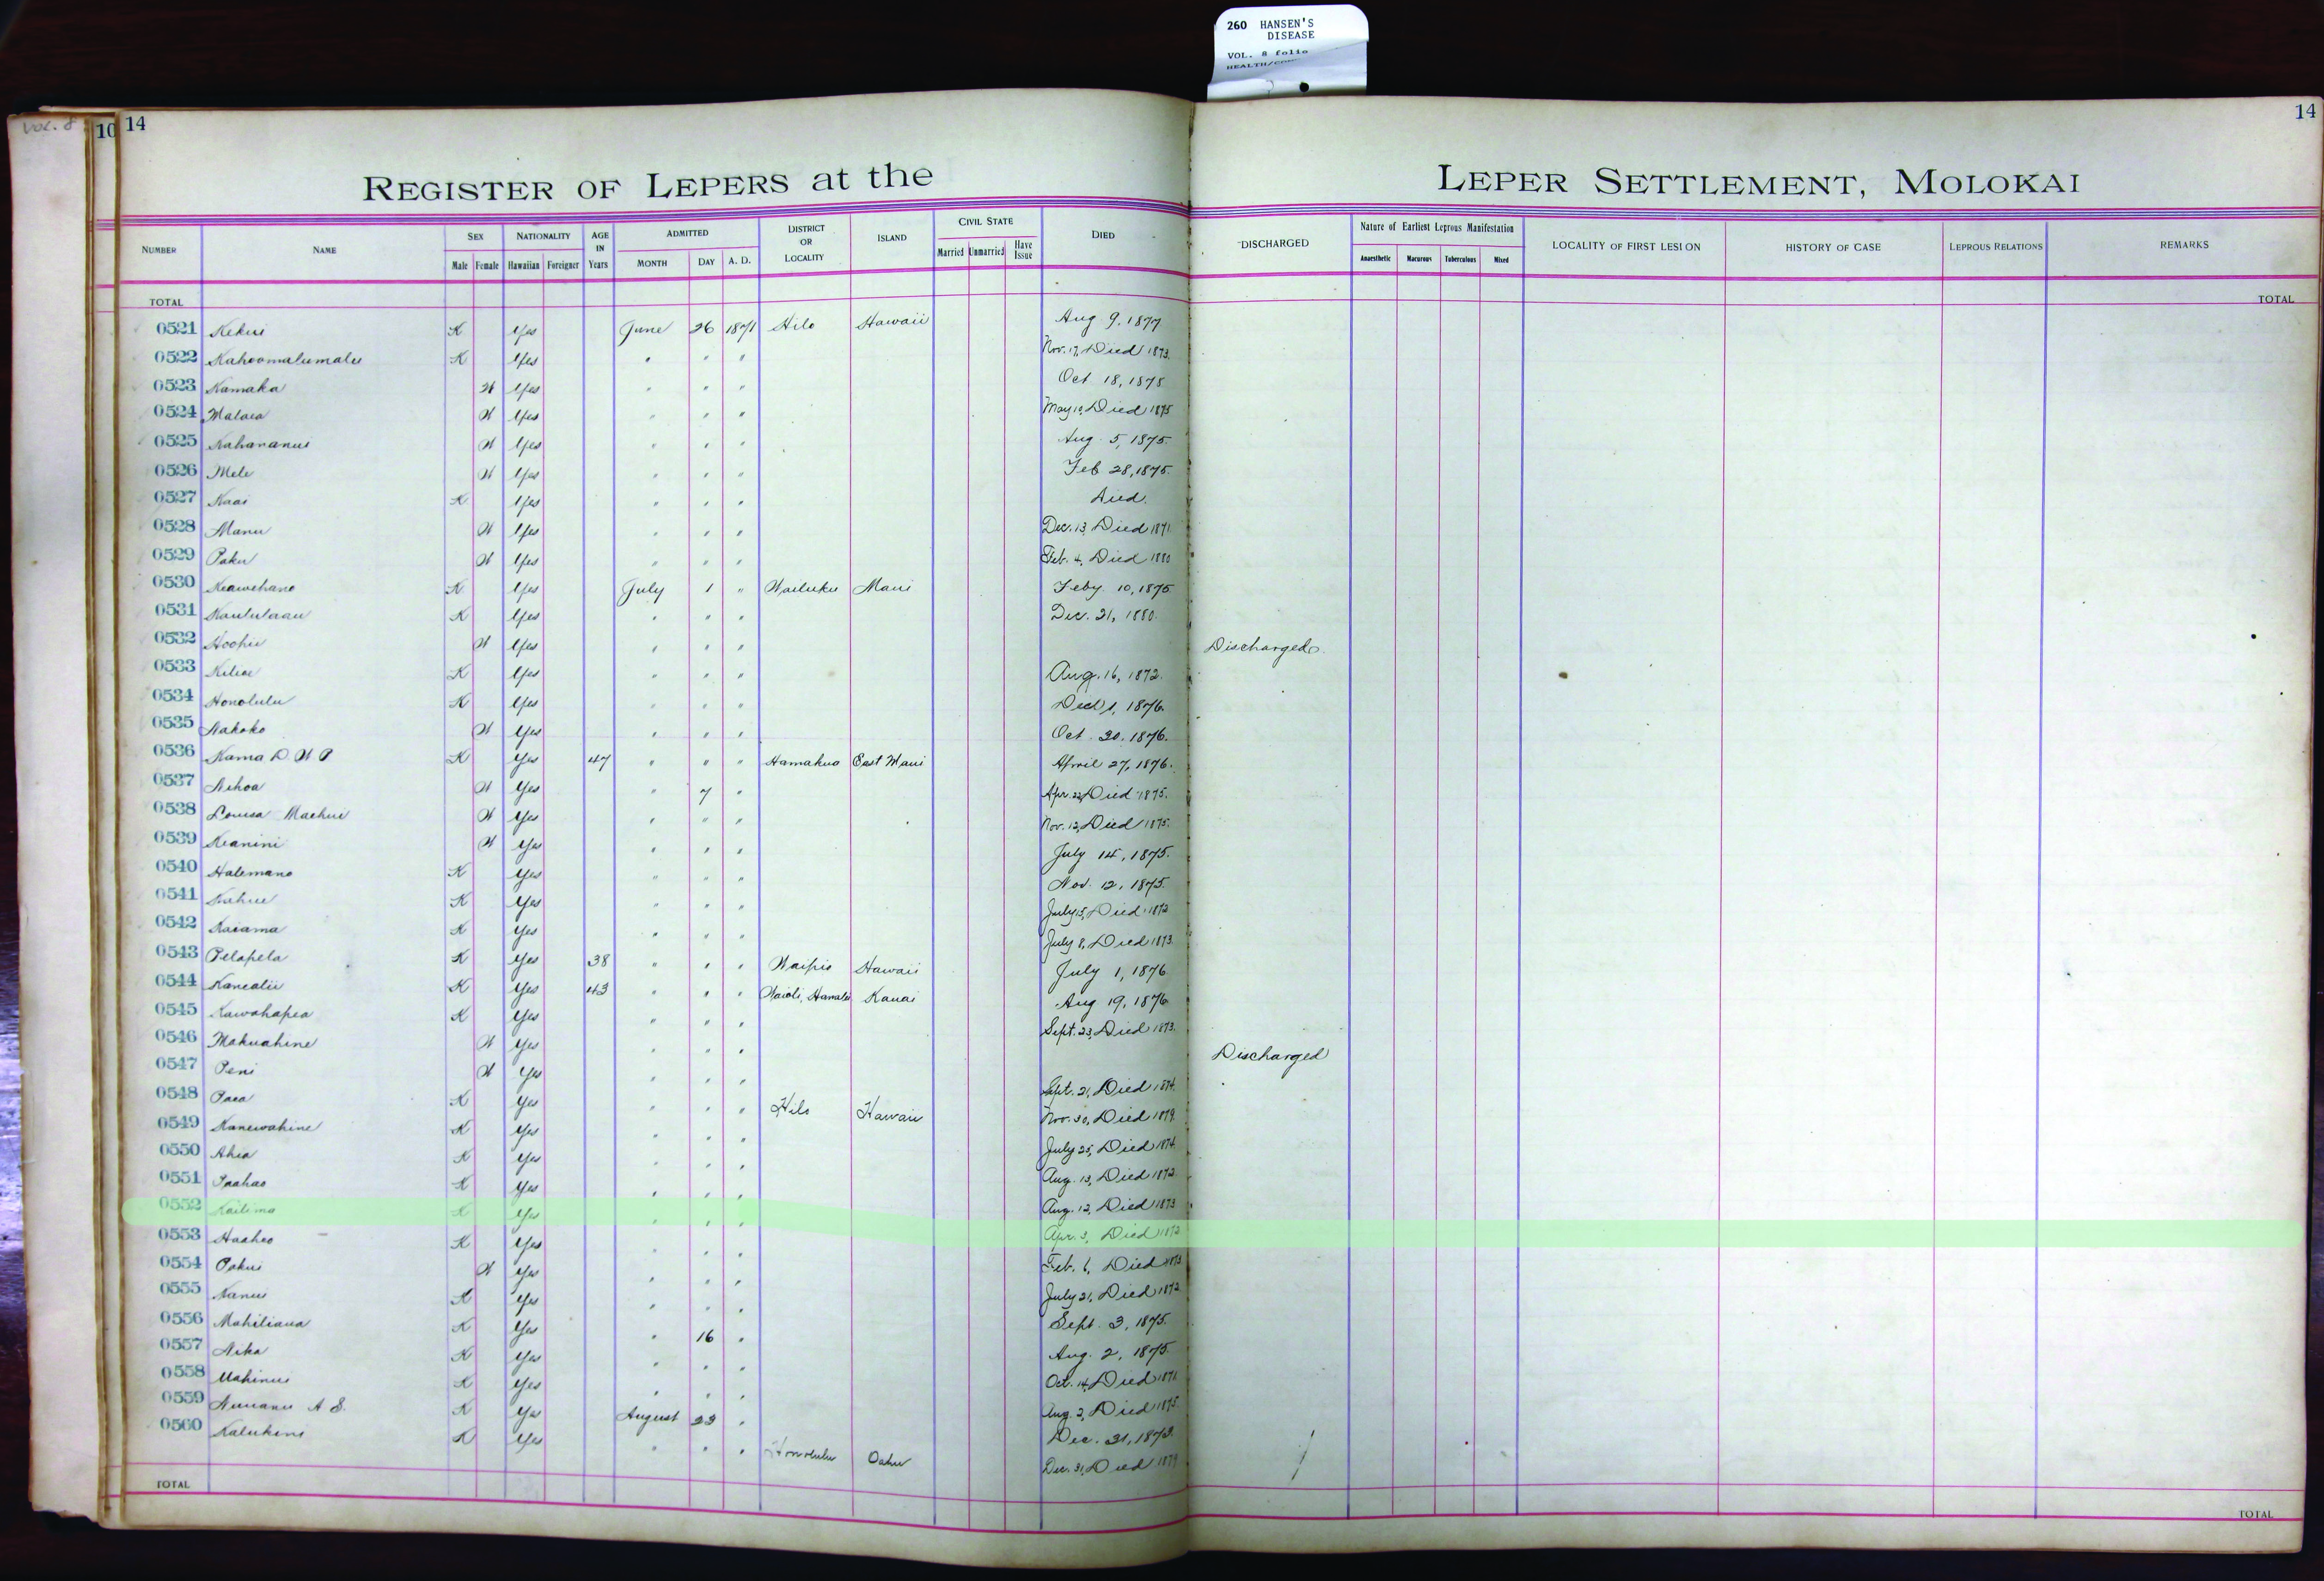 260 HANSEN'S
DISEASE
VOL. 8 folio
VOL. 8
10 14
14
REGISTER OF LEPERS at the LEPER SETTLEMENT, MOLOKAI
NUMBER NAME SEX Male Female NATIONALITY Hawaiian Foreigner AGE IN Years ADMITTED MONTH DAY A. D. DISTRICT OR LOCALITY ISLAND CIVIL STATE Married Unmarried Have Issue DIED DISCHARGED Nature of Earliest Leprous Manifestation Anaesthetic Macurous Tuberculous Mixed LOCALITY OF FIRST LESION HISTORY OF CASE LEPROUS RELATIONS REMARKS
TOTAL TOTAL
0521 Kekui K Yes June 26 1871 Hilo Hawaii Aug 9, 1877
0522 Kahoomalumalu K Yes " " " Nov. 17, Died 1873.
0523 Kamaka W Yes " " " Oct 18, 1875
0524 Malaea W Yes " " " May 10, Died 1875
0525 Kahananui W Yes " " " Aug. 5, 1875.
0526 Mele W Yes " " " Feb 28, 1875.
0527 Kaai K Yes " " " Died.
0528 Manu W Yes " " " Dec. 13, Died 1871
0529 Paku W Yes " " " Feb. 4, Died 1880
0530 Keawehano K Yes July 1 " Wailuku Maui Feby 10, 1875
0531 Kaululaau K Yes " " " Dec. 21, 1880.
0532 Hoohii W Yes " " " Discharged.
0533 Kiliae K Yes " " " Aug. 16, 1872.
0534 Honolulu K Yes " " " 1, 1876.
0535 Nakoko W Yes " " " Oct 20, 1876.
0536 Kama D. W P K Yes 47 " " " Hamakua East Maui April 27, 1876.
0537 Nihoa W Yes " 7 " Apr. 22, Died 1875.
0538 Louisa Maehui W Yes " " " Nov. 12, Died 1875.
0539 Keanini W Yes " " " July 14, 1875.
0540 Halemano K Yes " " " Nov. 12, 1875.
0541 Kahue K Yes " " " July 15, Died 1872
0542 Kaiama K Yes " " " July 8, Died 1873.
0543 Pelapela K Yes 38 " " " Waipio Hawaii July 1, 1876
0544 Kanealii K Yes 43 " " " Waioli, Hanalei Kauai Aug 19, 1876
0545 Kawahapea K Yes " " " Sept. 23, Died 1873.
0546 Makuahine W Yes " " " Discharged
0547 Peni W Yes " " " Sept. 21, Died 1874.
0548 Paea K Yes " " " Hilo Hawaii Nov. 30, Died 1879.
0549 Kanewahine K Yes " " " July 25, Died 1874.
0550 Ahia K Yes " " " Aug. 13, Died 1872.
0551 Paahao K Yes " " " Aug. 12, Died 1873
0552 Kailima K Yes " " " Apr. 3, Died 1872
0553 Haaheo K Yes " " " Feb. 6, Died 1873
0554 Pakui W Yes " " " July 21, Died 1872
0555 Nanui K Yes " " " Sept. 3, 1875.
0556 Mahiliana K Yes " 16 " Aug. 2, 1875.
0557 Nika K Yes " " " Oct. 14, Died 1871
0558 Mahinui K Yes " " " Aug. 2, Died 1875.
0559 Nuuanu A S. K Yes August 23 " Dec. 31, 1873.
0560 Kalukini K Yes " " " Honolulu Oahu Dec. 31, Died 1879
TOTAL TOTAL